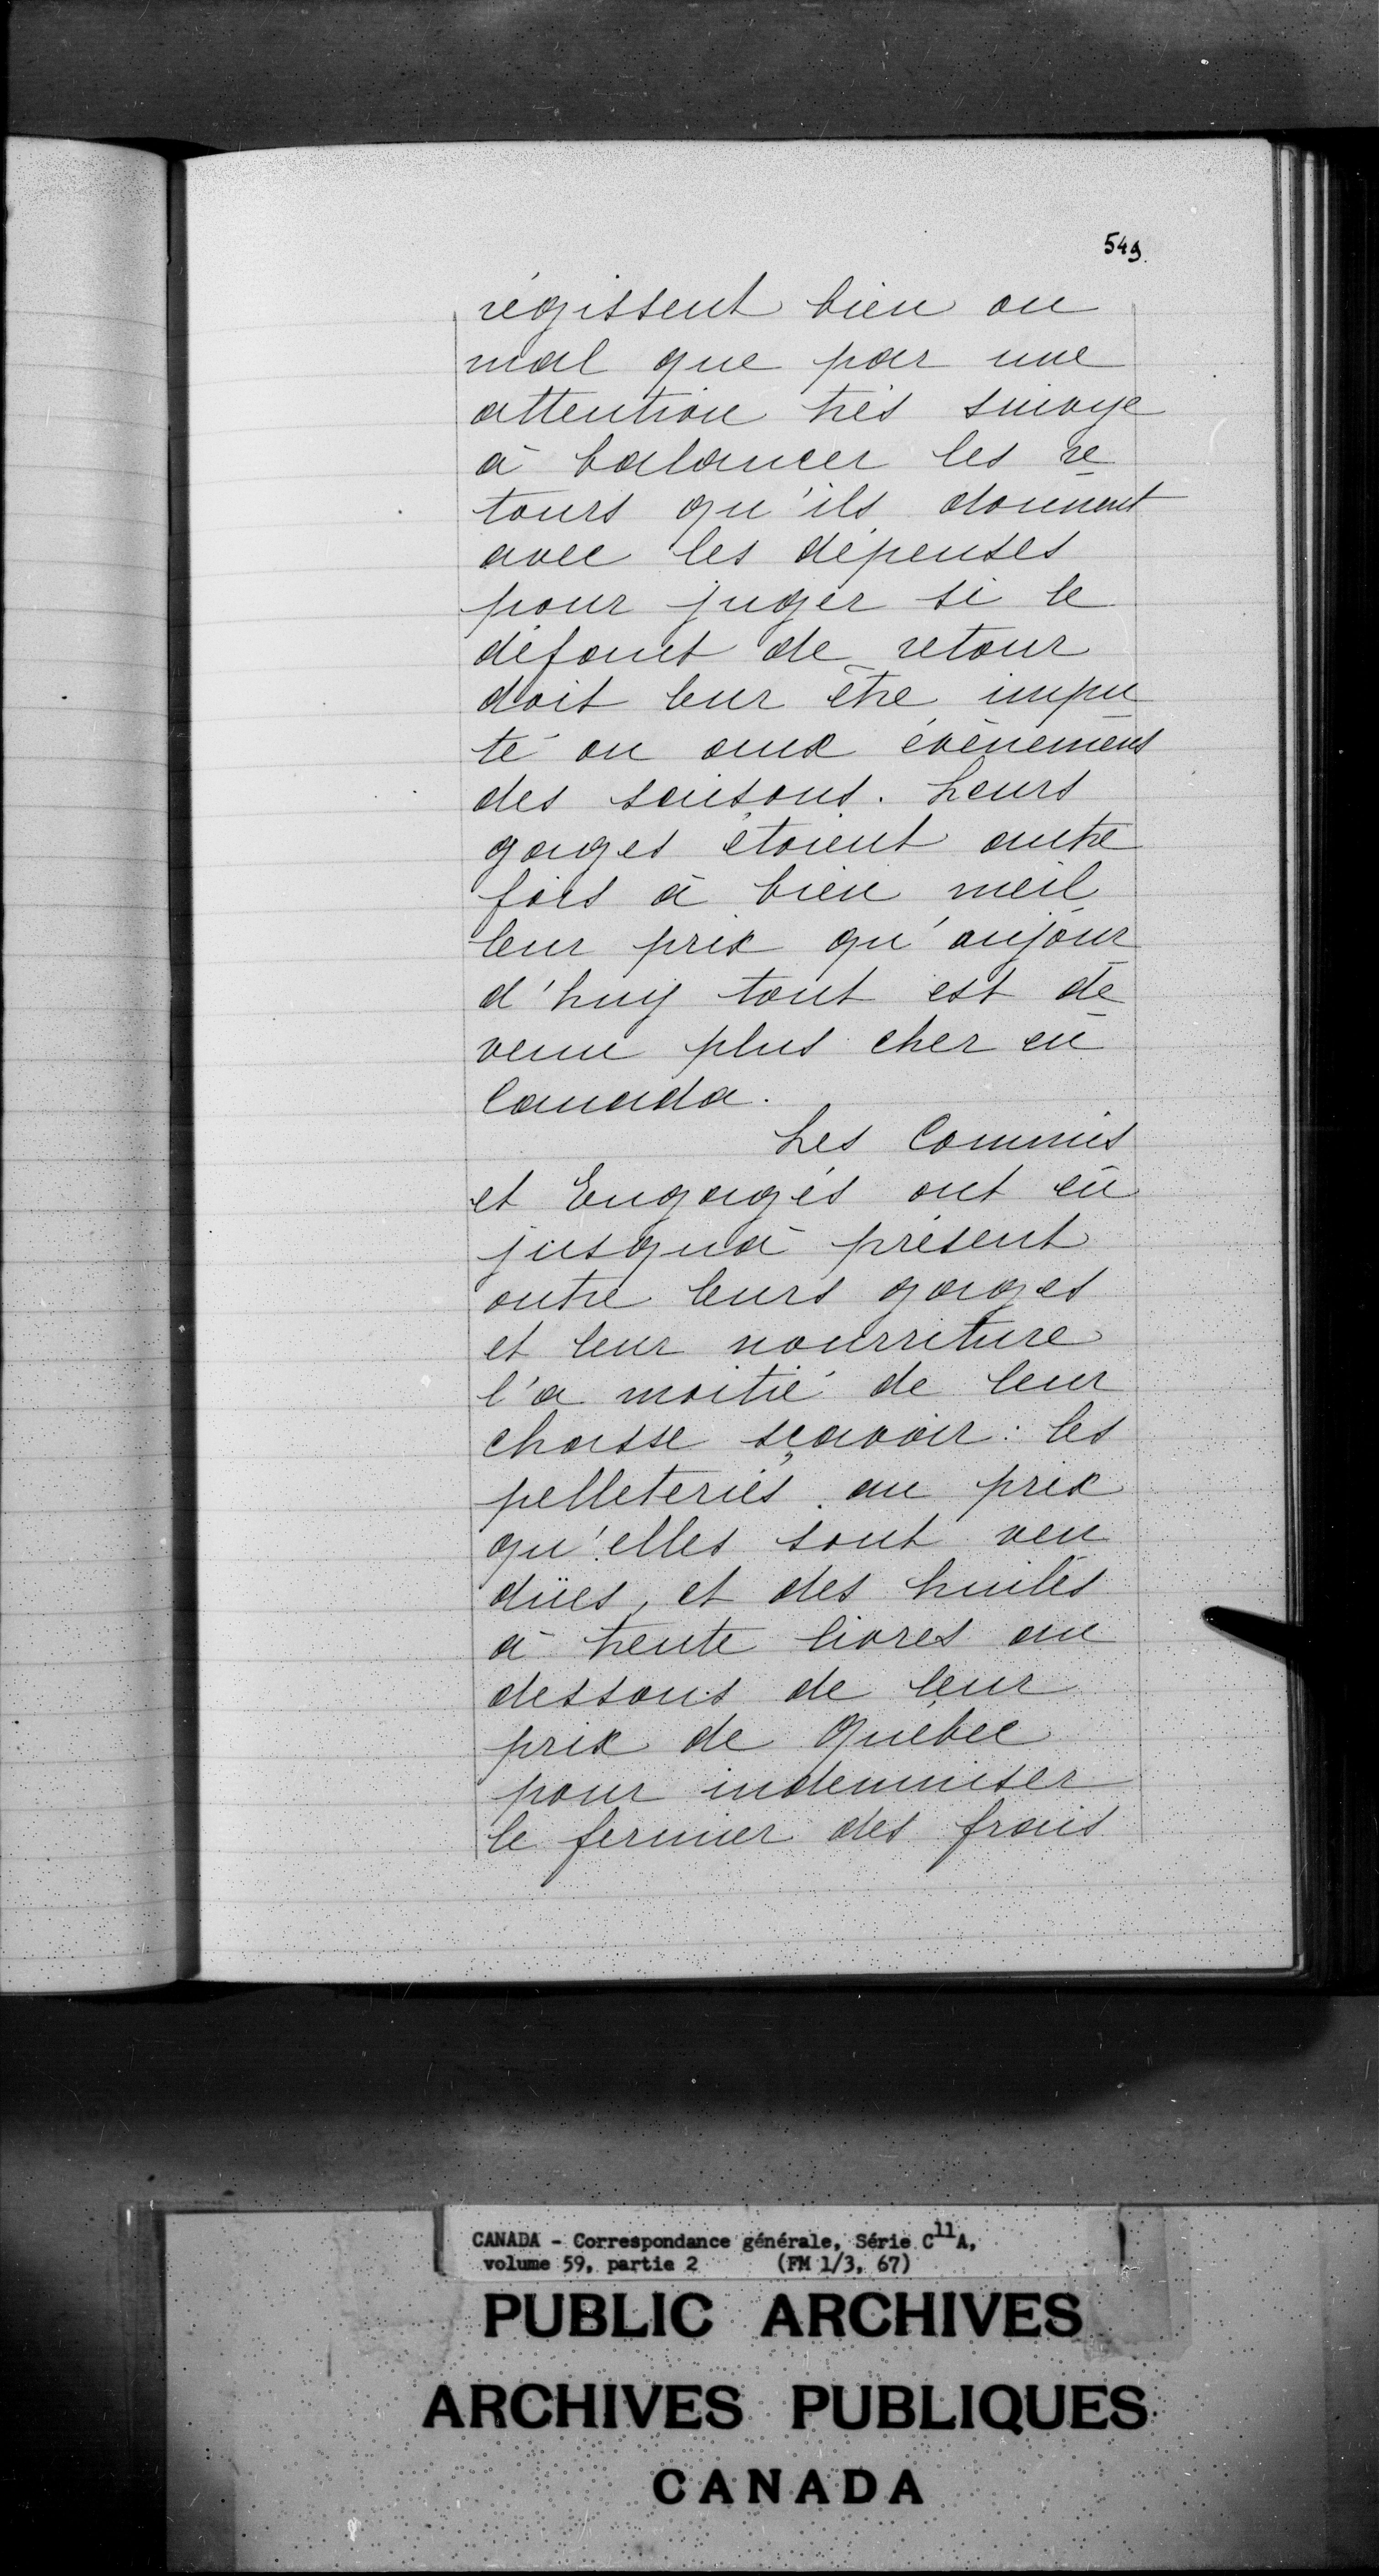 549.
régissent bien ou
mal que par une
attention très suivye
à balancer les re
tours qu'ils donnent
avec les dépenses
pour juger si le
défaut de retour
doit leur être impu
té ou aux évènemens
des saisons. Leurs
gages étoient autre
fois à bien meil
leur prix qu'aujour
d'huy tout est de
venu plus cher en
Canada.
Les Commis
et Engagés ont eu
jusqu'à présent
outre leurs gages
et leur nourriture
l'a moitié de leur
chasse sçavoir: les
pelleteries au prix
qu'elles sont ven
dües, et des huiles
à trente livres au
dessous de leur
prix de Québec
pour indemniser
le fermier des frais
CANADA - Correspondance générale, Série C11A,
volume 59, partie 2 (FM 1/3, 67)
PUBLIC ARCHIVES
ARCHIVES PUBLIQUES
CANADA